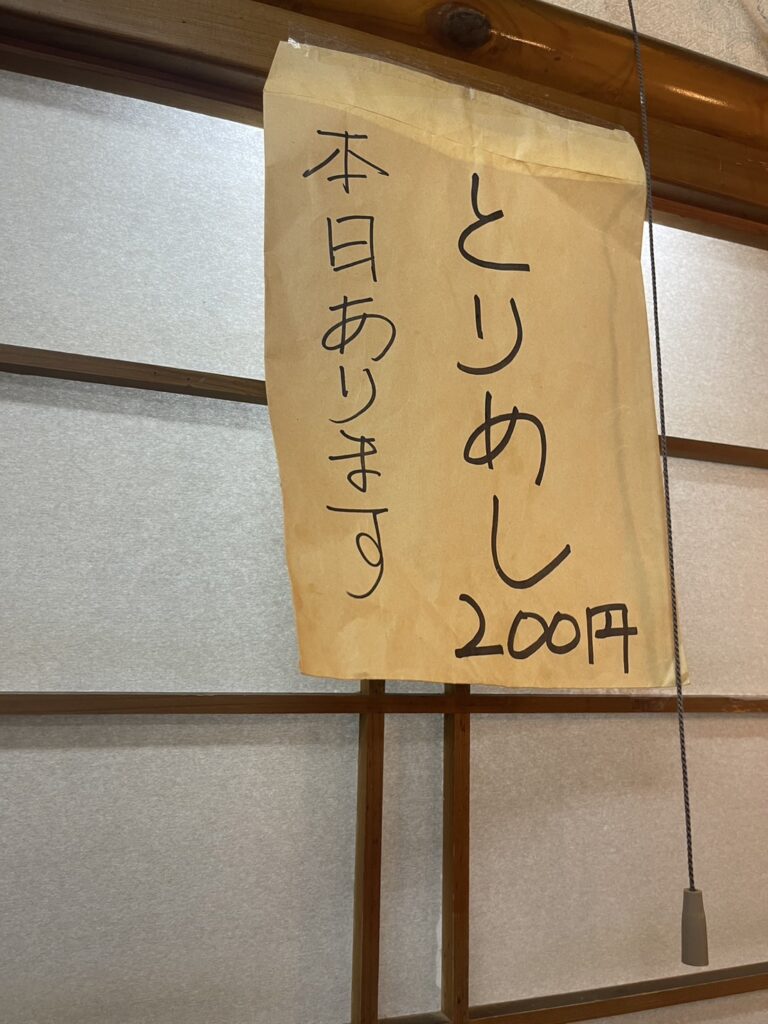 とりめし
200円
本日あります